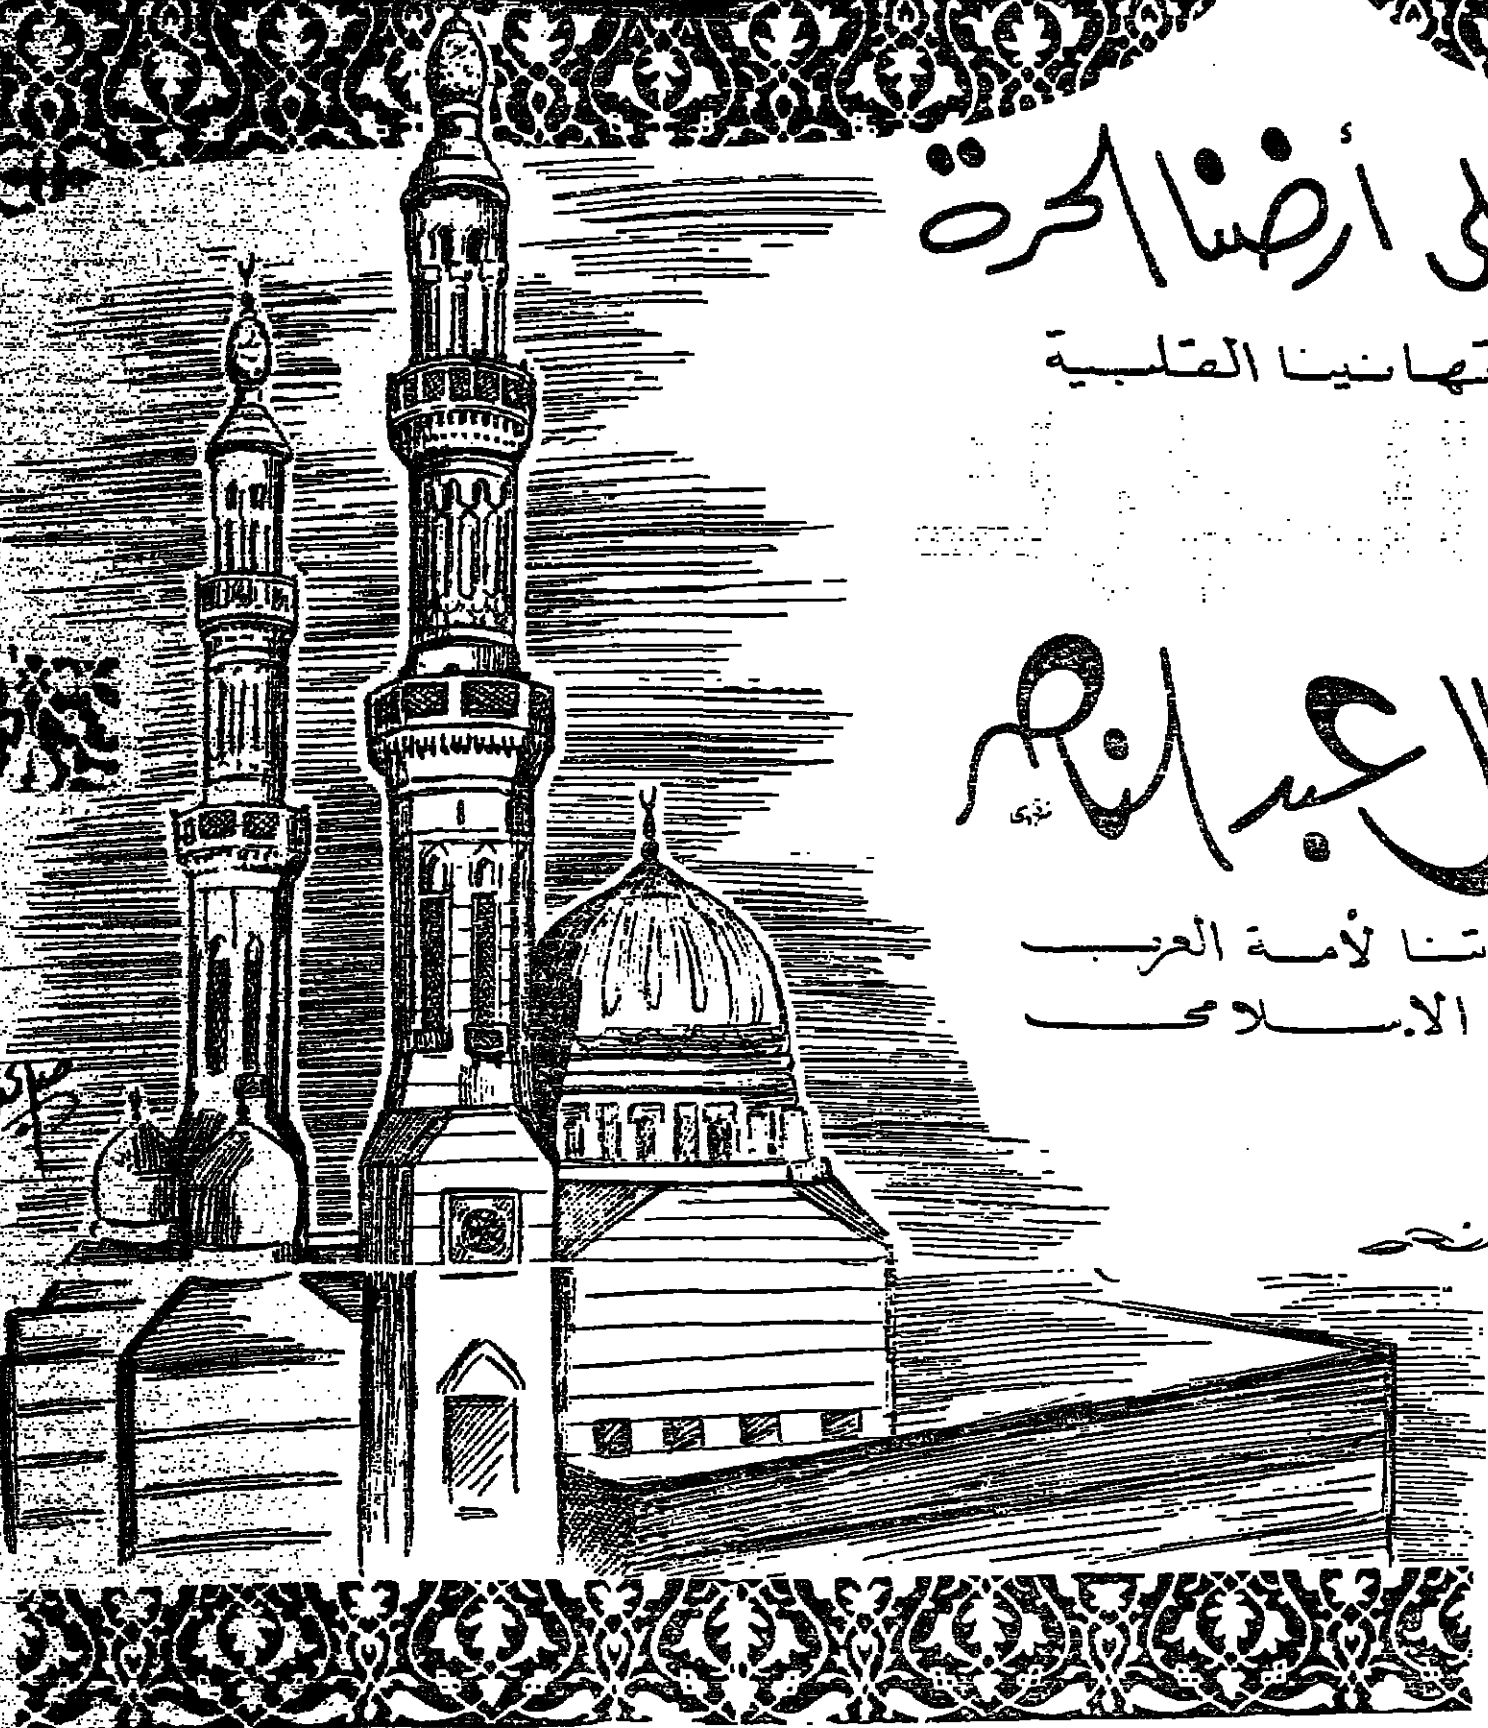 لى أرضنا الحرة
تهانينا القلبية
ل عبد الناصر
تنا لأمة العرب
الإسلامي